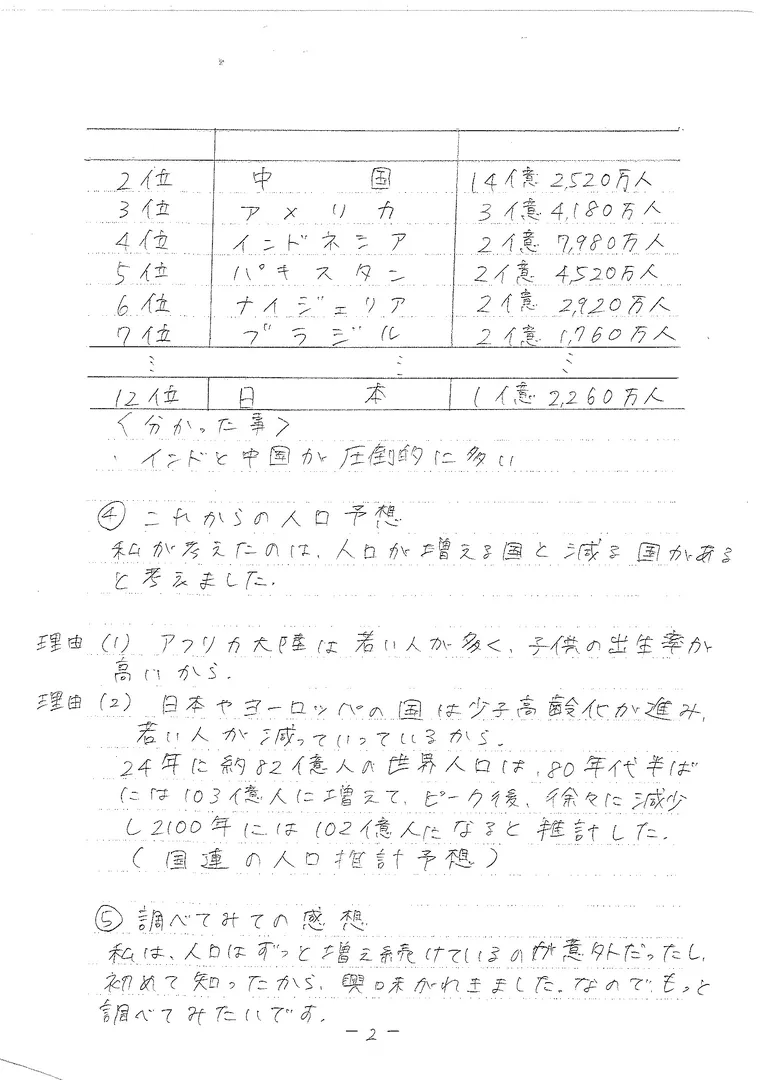 2位 中国 14億2,520万人
3位 アメリカ 3億4,180万人
4位 インドネシア 2億7,980万人
5位 パキスタン 2億4,520万人
6位 ナイジェリア 2億2,920万人
7位 ブラジル 2億1,760万人
⋮ ⋮ ⋮
12位 日本 1億2,260万人
〈分かった事〉
・インドと中国が圧倒的に多い
④これからの人口予想
私が考えたのは、人口が増える国と減る国がある
と考えました。
理由(1) アフリカ大陸は若い人が多く、子供の出生率が
高いから。
理由(2) 日本やヨーロッパの国は少子高齢化が進み、
若い人が減っていっているから。
24年に約82億人の世界人口は、80年代半ば
には103億人に増えて、ピーク後、徐々に減少
し2100年には102億人になると推計した。
(国連の人口推計予想)
⑤調べてみての感想
私は、人口はずっと増え続けているのが意外だったし、
初めて知ったから、興味がれきました。なのでもっと
調べてみたいです。
-2-